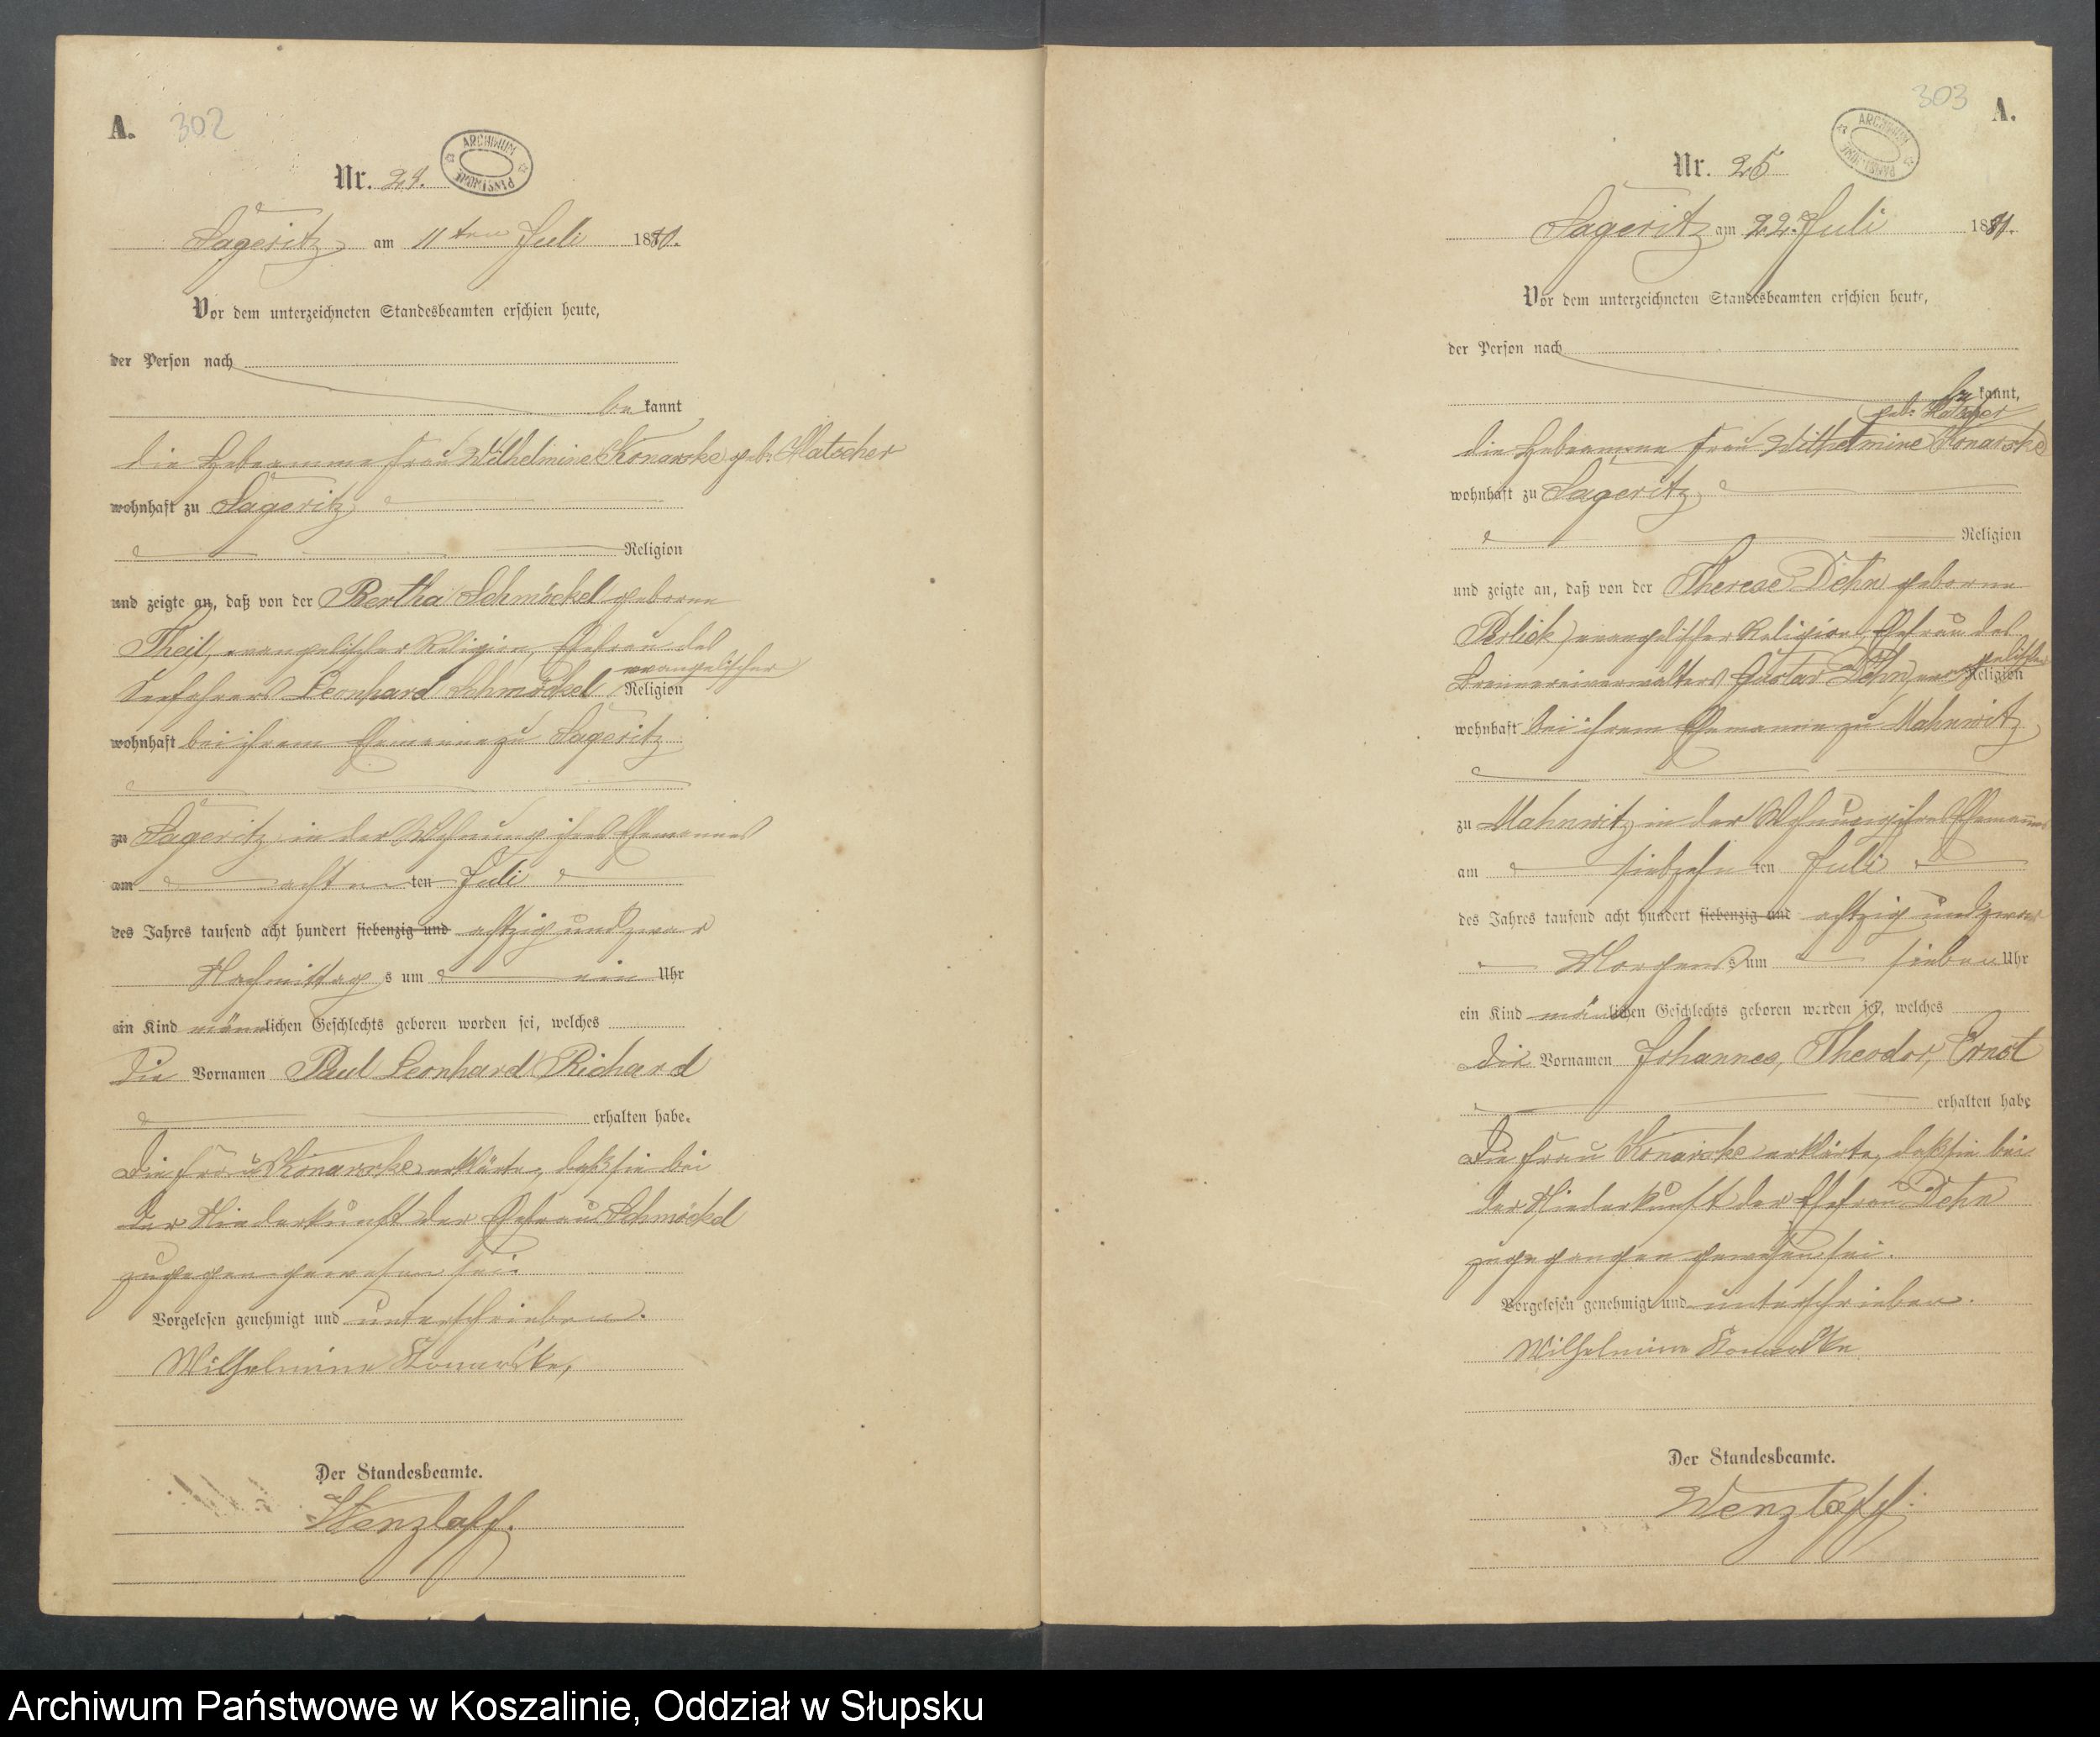 A. 302
ARCHIWUM PAŃSTWOWE
Nr. 24.
Sageritz am 11ten Juli 1880.
Vor dem unterzeichneten Standesbeamten erschien heute,
der Person nach
be kannt
die Hebeamme Frau Wilhelmine Konarske geb. Matscher
wohnhaft zu Sageritz
Religion
und zeigte an, daß von der Bertha Schmöckel geborne
Theil, evangelischer Religion, Ehefrau des
evangelischer
Seefahrers Leonhard Schmöckel Religion
wohnhaft bei ihrem Ehemanne zu Sageritz
zu Sageritz in der Wohnung ihres Ehemannes
am achten ten Juli
des Jahres tausend acht hundert siebenzig und achtzig und zwar
Nachmittag s um ein Uhr
ein Kind männlichen Geschlechts geboren worden sei, welches
die Vornamen Paul Leonhard Richard
erhalten habe.
Die Frau Konarske erklärte, daß sie bei
der Niederkunft der Ehefrau Schmöckel
zugegen gewesen sei.
Vorgelesen genehmigt und unterschrieben.
Wilhelmine Konarske,
Der Standesbeamte.
Wenzlaff.
303 A.
ARCHIWUM PAŃSTWOWE
Nr. 25
Sageritz am 22. Juli 1880.
Vor dem unterzeichneten Standesbeamten erschien heute,
der Person nach
be kannt,
geb. Matscher
die Hebeamme Frau Wilhelmine Konarske
wohnhaft zu Sageritz
Religion
und zeigte an, daß von der Therese Dehn geborne
Perlick, evangelischer Religion, Ehefrau des
gelischer
Brennereiverwalters Gustav Dehn, evan Religion
wohnhaft bei ihrem Ehemanne zu Mahnwitz
zu Mahnwitz in der Wohnung ihres Ehemannes
am siebzehn ten Juli
des Jahres tausend acht hundert siebenzig und achtzig und zwar
Morgens s um sieben Uhr
ein Kind männlichen Geschlechts geboren worden sei, welches
die Vornamen Johannes, Theodor, Ernst
erhalten habe
Die Frau Konarske erklärte, daß sie bei
der Niederkunft der Ehefrau Dehn
zugegangen gewesen sei.
Vorgelesen genehmigt und unterschrieben.
Wilhelmine Konarske
Der Standesbeamte.
Wenzlaff.
Archiwum Państwowe w Koszalinie, Oddział w Słupsku